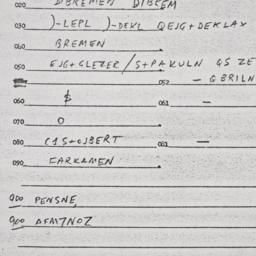 020 DIBREM
030 )-LEPL )-DEKL QEJG+DEKLAX
040 BREMEN
050 EJG+GLEZER/S+PAKULN QS ZE
052 - GBRILN
060 $ 061 -
070 0
080 -
090 FARKAMEN
900 PENSNE,
900 AFM7NOZ